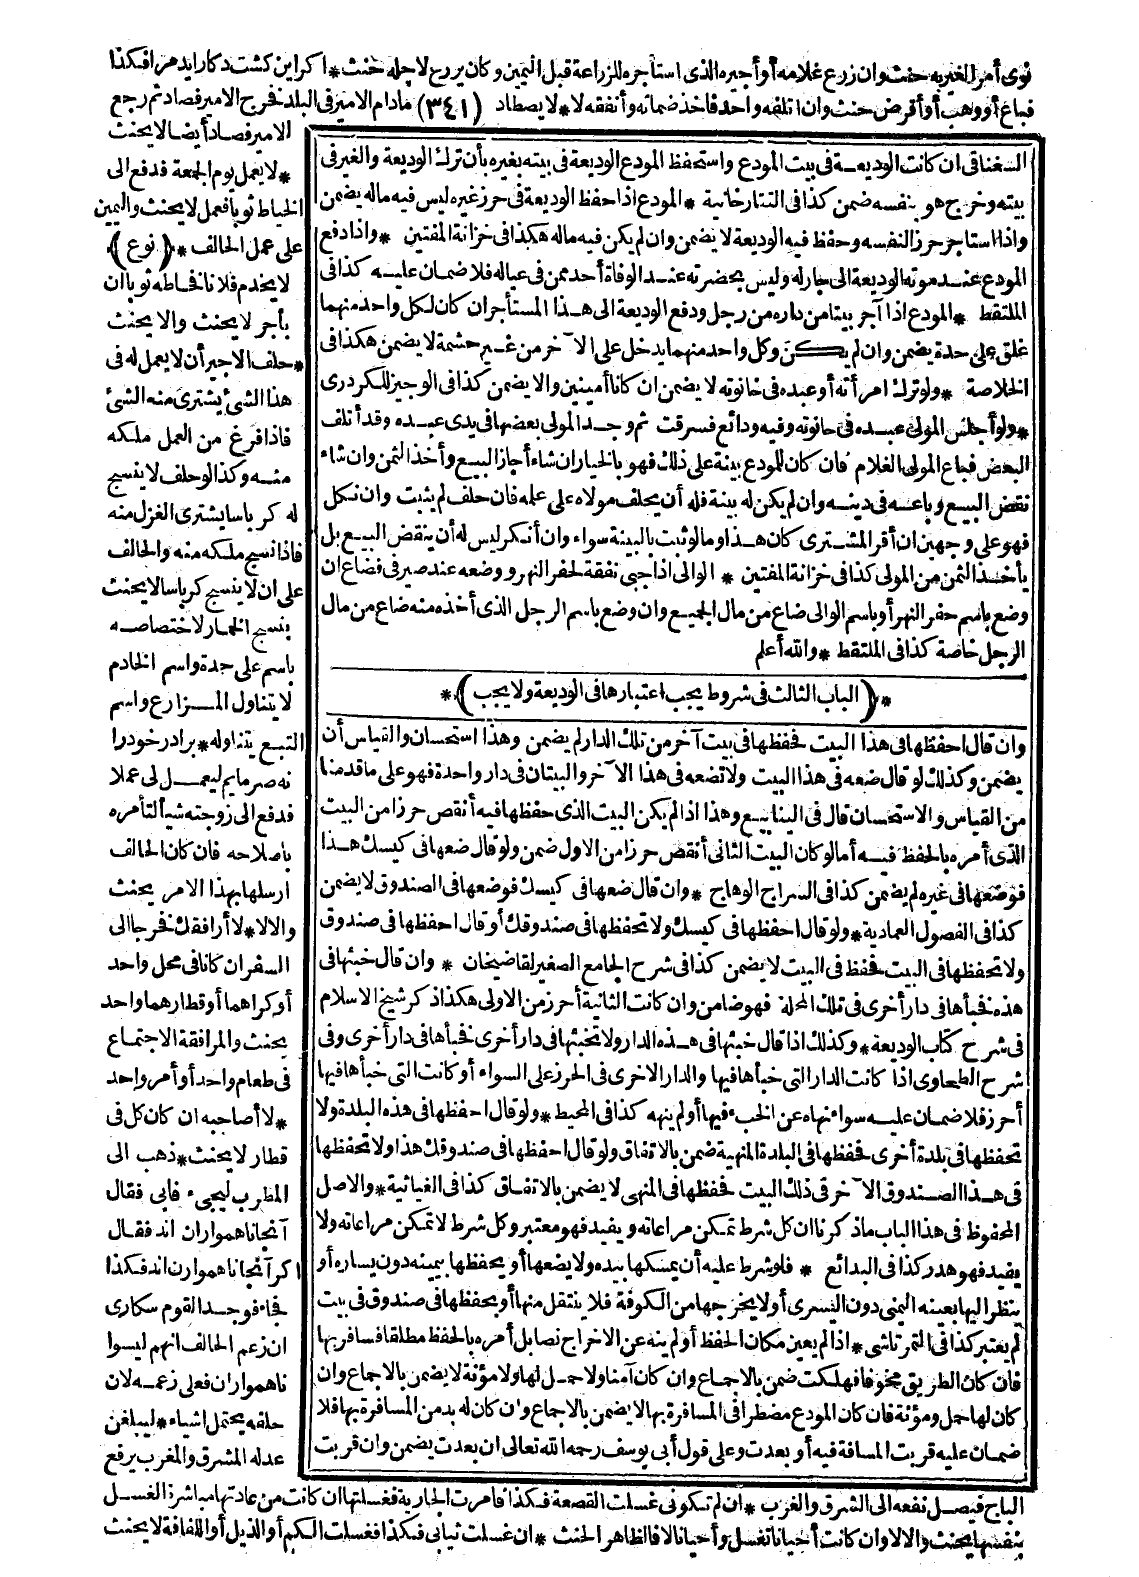 نوى أمر الغير به حنث وان زرع غلامه أو أجيره الذى استأجره للزراعة قبل اليمين وكان يزرع لاجله حنث * اكر اين كشت دكار ايد مرا فكذا
فباع أو وهب أو أقرض حنث وان اتلفه واحد فاخذ ضمانه وأنفقه لا * لا يصطاد (٣٤١) مادام الامير فى البلد فخرج الامير فصاد ثم رجع
الامير فصاد أيضا لا يحنث
* لا يعمل يوم الجمعة فدفع الى
الخياط ثوبا فعمل لا يحنث واليمين
على عمل الحالف * (نوع)
لا يخدم فلانا فخاطه ثوبا ان
بأجر لا يحنث والا يحنث
* حلف الاجير أن لا يعمل له فى
هذا الشئ يشترى منه الشئ
فاذا فرغ من العمل ملكه
منه وكذا لو حلف لا ينسج
له كرباسا يشترى الغزل منه
فاذا نسج ملكه منه والحالف
على ان لا ينسج كرباسا لا يحنث
بنسج الخمار لاختصاصه
باسم على حدة واسم الخادم
لا يتناول المزارع واسم
التبع يتناوله * برادر خودرا
نه صرمايم ليعمل لى عملا
فدفع الى زوجته شيأ لتأمره
باصلاحه فان كان الحالف
ارسلها بهذا الامر يحنث
والا لا * لا أرافقك فخرجا الى
السفر ان كانا فى محل واحد
أو كراهما أو قطارهما واحد
يحنث والمرافقة الاجتماع
فى طعام واحد أو أمر واحد
* لا أصاحبه ان كان كل فى
قطار لا يحنث * ذهب الى
المطرب ليجىء فابى فقال
آنجا ناهمواران اند فقال
اكر آنجا ناهمواران اند فكذا
فجاء فوجد القوم سكارى
ان زعم الحالف انهم ليسوا
ناهمواران فعلى زعمه لان
حلفه يحتمل اشياء * ليبلغن
عدله المشرق والمغرب يرفع
السغناقى ان كانت الوديعة فى بيت المودع واستحفظ المودع الوديعة فى بيته بغيره بأن ترك الوديعة والغير فى
بيته وخرج هو بنفسه ضمن كذا فى التتارخانية * المودع اذا حفظ الوديعة فى حرز غيره ليس فيه ماله يضمن
واذا استأجر حرزا لنفسه وحفظ فيه الوديعة لا يضمن وان لم يكن فيه ماله هكذا فى خزانة المفتين * واذا دفع
المودع عند موته الوديعة الى جار له وليس بحضرته عند الوفاة أحد ممن فى عياله فلا ضمان عليه كذا فى
الملتقط * المودع اذا آجر بيتا من داره من رجل ودفع الوديعة الى هذا المستأجر ان كان لكل واحد منهما
غلق على حدة يضمن وان لم يكن وكل واحد منهما يدخل على الآخر من غير حشمة لا يضمن هكذا فى
الخلاصة * ولو ترك امرأته أو عبده فى حانوته لا يضمن ان كانا أمينين والا يضمن كذا فى الوجيز للكردرى
* ولو أجلس المولى عبده فى حانوته وفيه ودائع فسرقت ثم وجد المولى بعضها فى يدى عبده وقد أتلف
البعض فباع المولى الغلام فان كان للمودع بينة على ذلك فهو بالخيار ان شاء أجاز البيع وأخذ الثمن وان شاء
نقض البيع وباعه فى دينه وان لم يكن له بينة فله أن يحلف مولاه على علمه فان حلف لم يثبت وان نكل
فهو على وجهين ان أقر المشترى كان هذا وما لو ثبت بالبينة سواء وان أنكر ليس له أن ينقض البيع بل
يأخذ الثمن من المولى كذا فى خزانة المفتين * الوالى اذا جبى نفقة لحفر النهر ووضعه عند صيرفى فضاع ان
وضع باسم حفر النهر أو باسم الوالى ضاع من مال الجميع وان وضع باسم الرجل الذى أخذه منه ضاع من مال
الرجل خاصة كذا فى الملتقط * والله أعلم
* (الباب الثالث فى شروط يجب اعتبارها فى الوديعة ولا يجب) *
وان قال احفظها فى هذا البيت فحفظها فى بيت آخر من تلك الدار لم يضمن وهذا استحسان والقياس أن
يضمن وكذلك لو قال ضعه فى هذا البيت ولا تضعه فى هذا الآخر والبيتان فى دار واحدة فهو على ما قدمنا
من القياس والاستحسان قال فى الينابيع وهذا اذا لم يكن البيت الذى حفظها فيه أنقص حرزا من البيت
الذى أمره بالحفظ فيه أما لو كان البيت الثانى أنقص حرزا من الاول ضمن ولو قال ضعها فى كيسك هذا
فوضعها فى غيره لم يضمن كذا فى السراج الوهاج * وان قال ضعها فى كيسك فوضعها فى الصندوق لا يضمن
كذا فى الفصول العمادية * ولو قال احفظها فى كيسك ولا تحفظها فى صندوقك أو قال احفظها فى صندوق
ولا تحفظها فى البيت فحفظ فى البيت لا يضمن كذا فى شرح الجامع الصغير لقاضيخان * وان قال خبئها فى
هذه فخبأها فى دار أخرى فى تلك المحلة فهو ضامن وان كانت الثانية أحرز من الاولى هكذا ذكر شيخ الاسلام
فى شرح كتاب الوديعة * وكذلك اذا قال خبئها فى هذه الدار ولا تخبئها فى دار أخرى فخبأها فى دار أخرى وفى
شرح الطحاوى اذا كانت الدار التى خبأها فيها والدار الاخرى فى الحرز على السواء أو كانت التى خبأها فيها
أحرز فلا ضمان عليه سواء نهاه عن الخبء فيها أو لم ينهه كذا فى المحيط * ولو قال احفظها فى هذه البلدة ولا
تحفظها فى بلدة أخرى فحفظها فى البلدة المنهية ضمن بالاتفاق ولو قال احفظها فى صندوقك هذا ولا تحفظها
فى هذا الصندوق الآخر فى ذلك البيت فحفظها فى المنهى لا يضمن بالاتفاق كذا فى الغياثية * والاصل
المحفوظ فى هذا الباب ماذكرنا ان كل شرط تمكن مراعاته ويفيد فهو معتبر وكل شرط لا تمكن مراعاته ولا
يفيد فهو هدر كذا فى البدائع * فلو شرط عليه أن يمسكها بيده ولا يضعها أو يحفظها بيمينه دون يساره أو
ينظر اليها بعينه اليمنى دون اليسرى أو لا يخرجها من الكوفة فلا ينتقل منها أو يحفظها فى صندوق فى بيت
لم يعتبر كذا فى التمرتاشى * اذا لم يعين مكان الحفظ أو لم ينه عن الاخراج نصا بل أمره بالحفظ مطلقا فسافر بها
فان كان الطريق مخوفا فهلكت ضمن بالاجماع وان كان آمنا ولا حمل لها ولا مؤنة لا يضمن بالاجماع وان
كان لها حمل ومؤنة فان كان المودع مضطرا فى المسافرة بها لا يضمن بالاجماع وان كان له بد من المسافرة بها فلا
ضمان عليه قربت المسافة فيه أو بعدت وعلى قول أبى يوسف رحمه الله تعالى ان بعدت يضمن وان قربت
الباج فيصل نفعه الى الشرق والغرب * ان لم تكونى غسلت القصعة فكذا فامرت الجارية فغسلتها ان كانت من عادتها مباشرة الغسل
بنفسها يحنث والا لا وان كانت أحيانا تغسل وأحيانا لا فالظاهر الحنث * ان غسلت ثيابى فكذا فغسلت الكم أو الذيل أو اللفافة لا يحنث